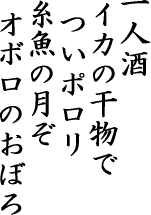 一人酒
イカの干物で
ついポロリ
糸魚の月ぞ
オボロのおぼろ